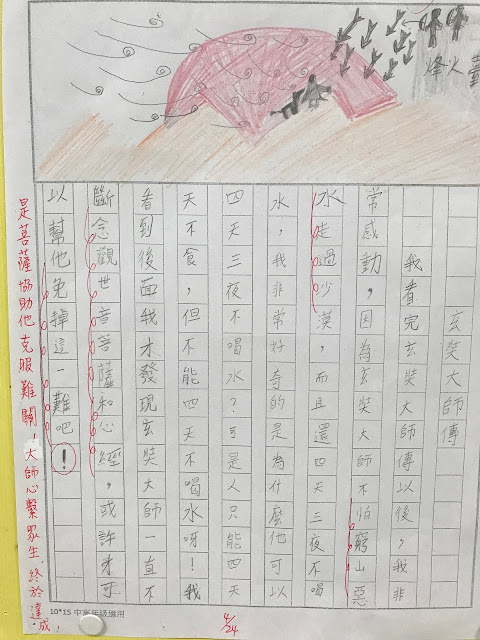 烽火臺
玄奘大師傳
我看完玄奘大師傳以後，我非
常感動，因為玄奘大師不怕窮山惡
水走過沙漠，而且還四天三夜不喝
水，我非常好奇的是為什麼他可以
四天三夜不喝水？可是人只能四天
天不食，但不能四天不喝水呀！我
看到後面我才發現玄奘大師一直不
斷念觀世音菩薩和心經，或許才可
以幫他免掉這一難吧！
是菩薩協助他克服難關！大師心繫眾生，終於達成！
10*15 中高年級適用
4/24